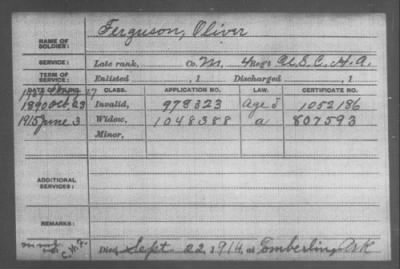 NAME OF SOLDIER: Ferguson, Oliver
SERVICE: Late rank, Co. M, 4 Reg't U.S.C.H.A.
TERM OF SERVICE: Enlisted , 1 Discharged , 1
DATE OF FILING. CLASS. APPLICATION NO. LAW. CERTIFICATE NO.
1890 Oct 23 Invalid, 978323 Age J 1052186
1915 June 3 Widow, 1048388 a 807593
Minor,
ADDITIONAL SERVICES:
REMARKS:
C.H.A.
Died Sept 22, 1914, at Tomberlin, Ark